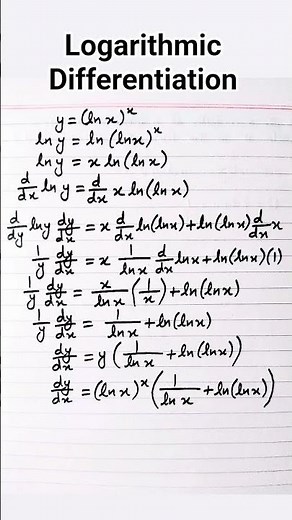 Logarithmic
Differentiation
y = (ln x)^x
ln y = ln (ln x)^x
ln y = x ln (ln x)
d/dx ln y = d/dx x ln (ln x)
d/dy ln y dy/dx = x d/dx ln (ln x) + ln (ln x) d/dx x
1/y dy/dx = x 1/ln x d/dx ln x + ln (ln x) (1)
1/y dy/dx = x/ln x (1/x) + ln (ln x)
1/y dy/dx = 1/ln x + ln (ln x)
dy/dx = y (1/ln x + ln (ln x))
dy/dx = (ln x)^x (1/ln x + ln (ln x))